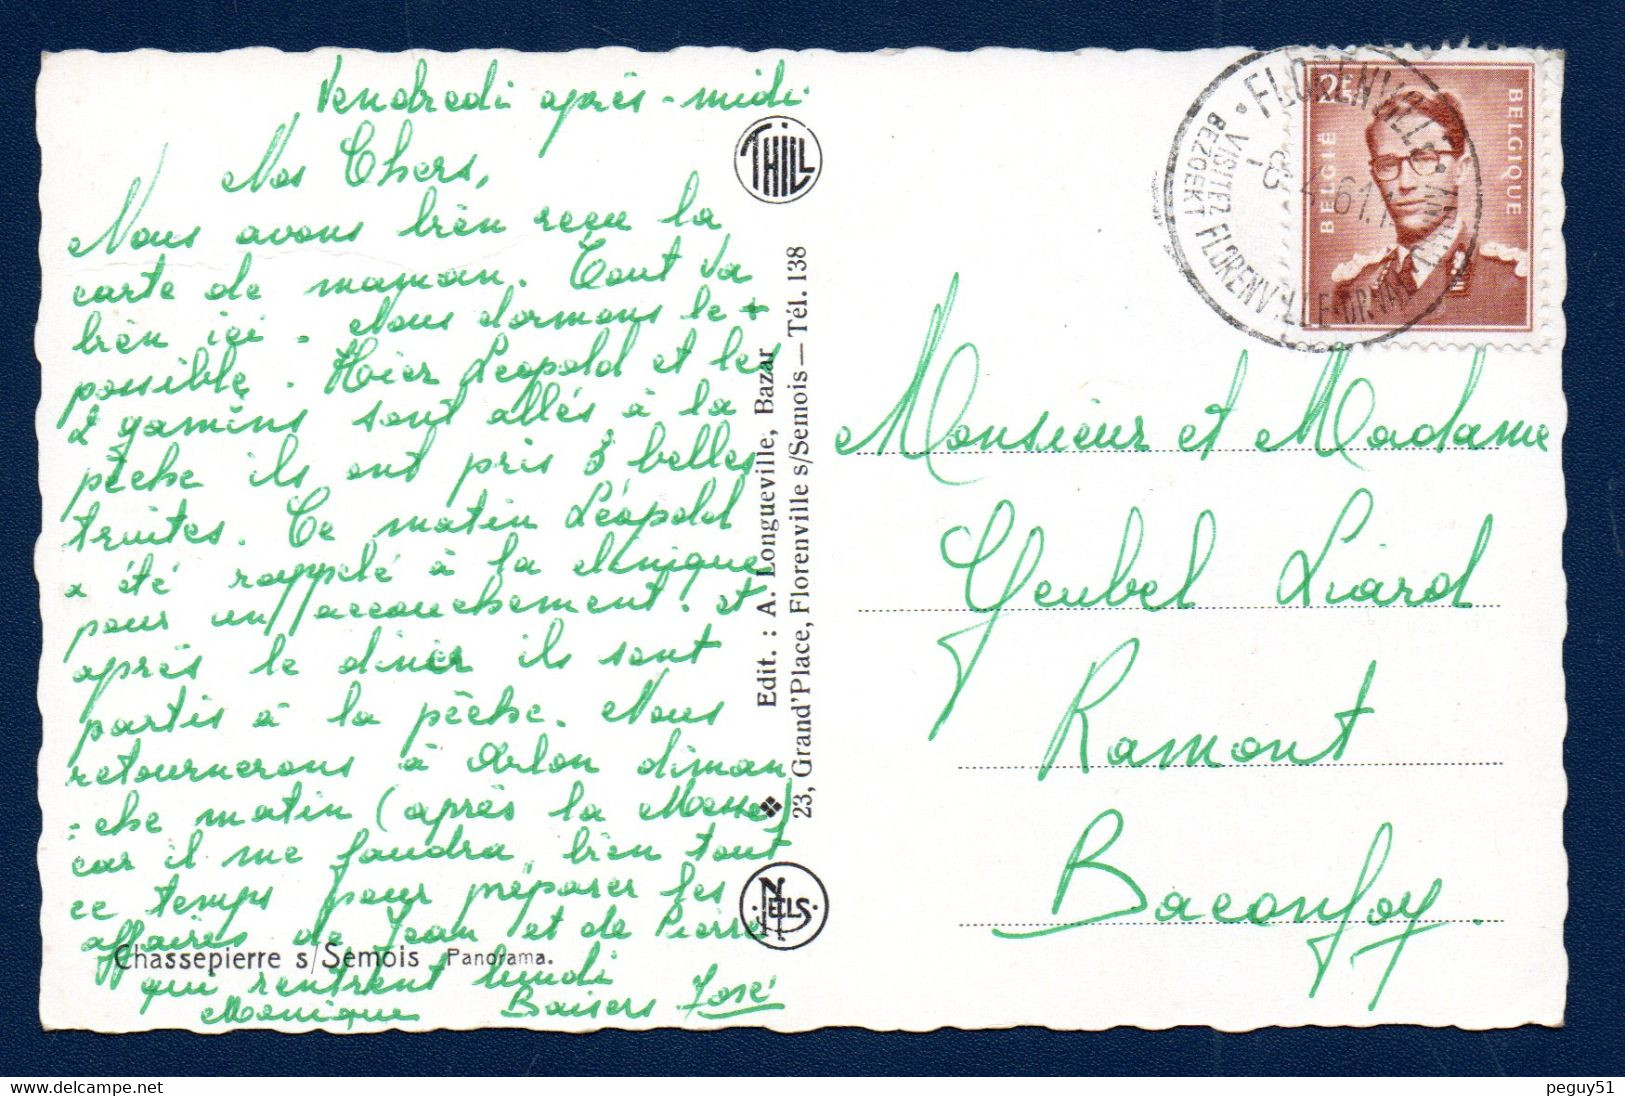 Vendredi après-midi
Nos Chers,
Nous avons bien reçu la
carte de maman. Tout va
bien ici. Nous dormons le +
possible. Hier Léopold et les
2 gamins sont allés à la
pêche ils ont pris 3 belles
truites. Ce matin Léopold
a été rappelé à la clinique
pour un accouchement. et
après le diner ils sont
partis à la pêche. Nous
retournerons à Arlon diman
-che matin (après la Messe)
car il me faudra bien tout
ce temps pour préparer les
affaires de Jean et de Pierre
qui rentrent lundi
Monique Baisers José
Chassepierre s/Semois Panorama.
THILL
Edit. : A. Longueville, Bazar
23, Grand'Place, Florenville s/Semois — Tél. 138
NELS
FLORENVILLE
VISITEZ FLORENVILLE-ORVAL
BEZOEKT
2F
BELGIË
BELGIQUE
Monsieur et Madame
Geubel Liard
Ramont
Baconfoy.
www.delcampe.net
peguy51